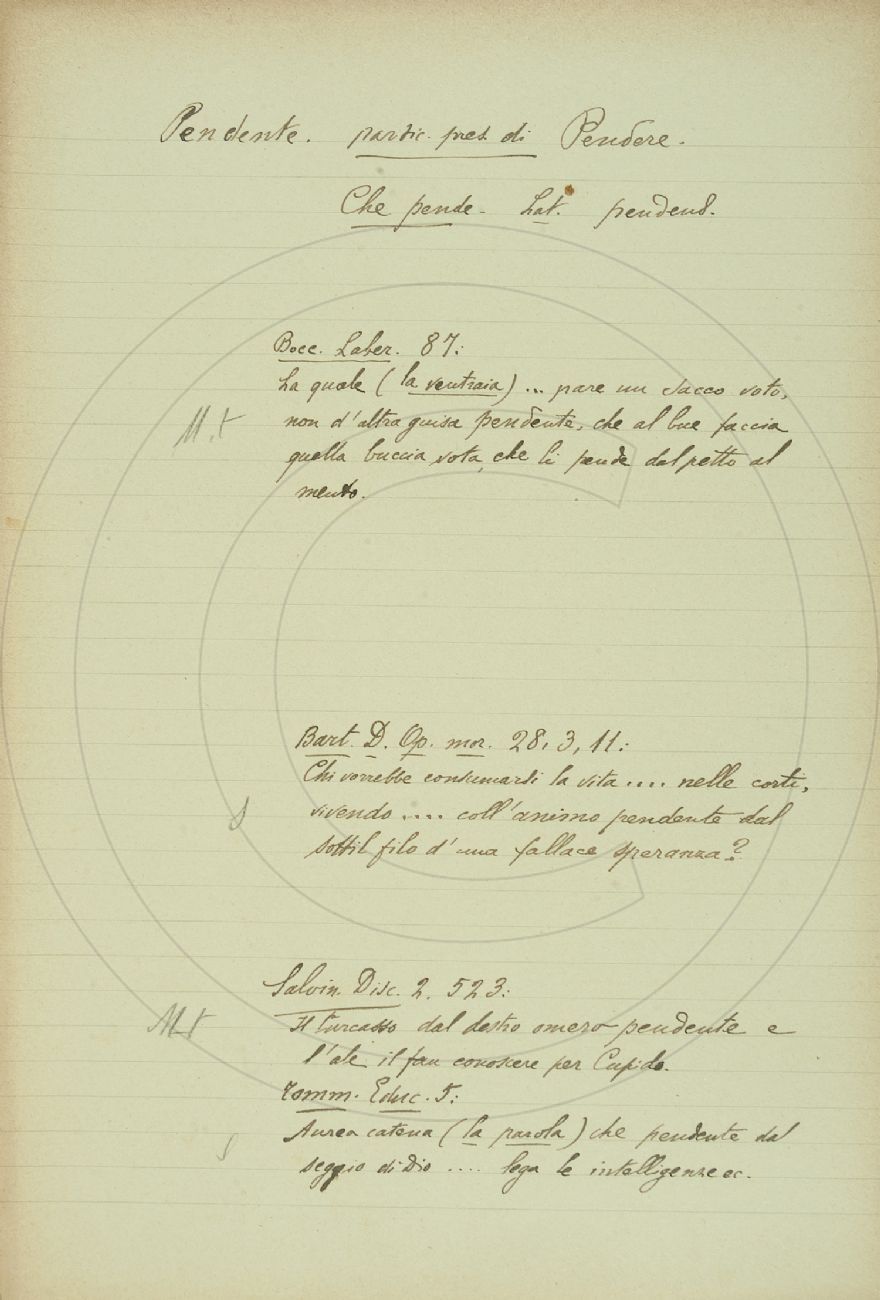 Pendente. partic. pres. di Pendere.
Che pende. Lat. pendens.
Bocc. Laber. 87:
La quale (la ventraia) ... pare un sacco voto,
non d'altra guisa pendente, che al bue faccia
quella buccia vota, che li pende dal petto al
mento.
Bart. D. Op. mor. 28, 3, 11:
Chi vorrebbe consumarsi la vita .... nelle corti,
vivendo .... coll'animo pendente dal
sottil filo d'una fallace speranza?
Salvin. Disc. 2. 523:
Il turcasso dal destro omero pendente e
l'ale il fan conoscere per Cupido.
Tomm. Educ. 5:
Aurea catena (la parola) che pendente dal
seggio di Dio .... lega le intelligenze ec.